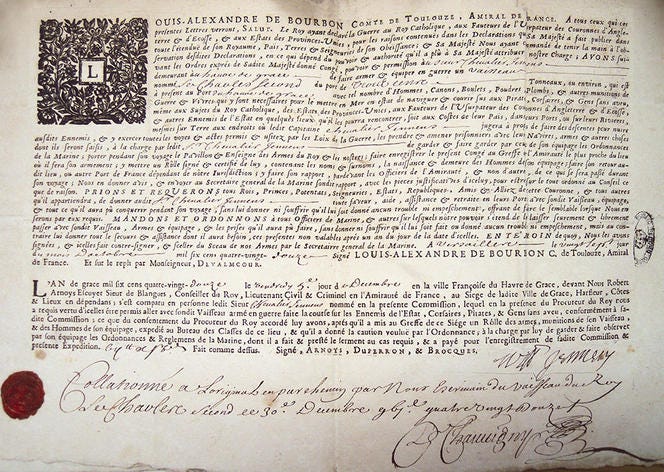 LOUIS-ALEXANDRE DE BOURBON COMTE DE TOULOUZE, AMIRAL DE FRANCE. A tous ceux qui ces
presentes Lettres verront, SALUT. Le Roy ayant declaré la Guerre au Roy Catholique, aux Fauteurs de l'Usurpateur des Couronnes d'Angle-
terre & d'Ecosse, & aux Estats des Provinces-Unies, pour les raisons contenuës dans les Declarations
toute l'étenduë de son Royaume, Païs, Terres & Seigneuries de son Obeïssance; & Sa Majesté Nous ayant
servation desdites Declarations, en ce qui dépend du pouvoir & authorité qu'il a plû à Sa Majesté attribuer à nostre Charge; AVONS, sui-
vant les Ordres exprés de Sadite Majesté donné Congé, pouvoir & permission au
demeurant au havre de grace de faire armer & équiper en guerre un Vaisseau
nommé Le Charles Second du port de Tonneaux, ou environ, qui est
à present au Port du havre de grace avec tel nombre d'Hommes, Canons, Boulets, Poudres, Plombs, & autres munitions de
Guerre & Vivres qui y sont necessaires pour le mettre en Mer en estat de naviguer & courir sus aux Pirates, Corsaires, & Gens sans aveu,
même aux Sujets du Roy Catholique, des Estats des Provinces-Unies, aux Fauteurs de l'Usurpateur des Couronnes d'Angleterre & d'Ecosse,
& autres Ennemis de l'Estat en quelques lieux qu'il les pourra rencontrer, soit aux Costes de leur Païs, dans leurs Ports, ou sur leurs Rivieres,
mesmes sur Terre aux endroits où ledit Capitaine jugera à propos de faire des descentes pour nuire
ausdits Ennemis, & y exercer toutes les voyes & actes permis & usitez par les Loix de la Guerre, les prendre & amener prisonniers
dont ils seront saisis, à la charge par ledit de garder & faire garder par ceux de son équipage les Ordonnances
de la Marine; porter pendant son voyage le Pavillon & Enseigne des Armes du Roy & les nostres; faire enregistrer le present Congé au Greffe de l'Amirauté le plus proche du lieu
où il fera son armement; y mettre un Rôle signé & certifié de luy, contenant les noms & surnoms, la naissance & demeure des Hommes de son équipage; faire son retour au-
dit lieu, ou autre Port de France dépendant de nôtre Jurisdiction; y faire son rapport, pardevant les Officiers de l'Amirauté, & non d'autres, de ce qui se sera passé durant
son voyage; Nous en donner avis, & envoyer au Secretaire general de la Marine sondit rapport, avec les pieces justificatives d'iceluy, pour estre sur le tout ordonné au Conseil ce
que de raison. PRIONS ET REQUERONS tous Rois, Princes, Potentats, Seigneuries, Estats, Republiques, Amis & Alliez de cette Couronne, & tous autres
qu'il appartiendra, de donner audit toute faveur, aide, assistance & retraite en leurs Ports avec sondit Vaisseau, équipage,
& tout ce qu'il aura pû conquerre pendant son voyage, sans luy donner ni souffrir qu'il luy soit donné aucun trouble ni empeschement, offrant de faire le semblable lorsque Nous en
serons par eux requis. MANDONS ET ORDONNONS à tous Officiers de Marine, & autres sur lesquels nostre pouvoir s'étend de le laisser seurement & librement
passer avec sondit Vaisseau, Armes & équipage, & les prises qu'il aura pû faire, sans luy faire ni souffrir qu'il luy soit fait ou donné aucun trouble ni empeschement, mais au con-
traire luy donner tout le secours & assistance dont il aura besoin, ces presentes non valables aprés un an du jour de la datte d'icelles. EN TEMOIN de quoy, Nous les avons
signées, & icelles fait contre-signer, & sceller du Sceau de nos Armes par le Secretaire general de la Marine. A Versailles le vingt sept jour
du mois d'octobre mil six cens quatre-vingt-douze Signé LOUIS-ALEXANDRE DE BOURBON C. de Toulouze, Amiral
de France. Et sur le reply par Monseigneur, DEVALMCOUR.
L'AN de grace mil six cens quatre-vingt-douze le jour de en la ville Françoise du Havre de Grace, devant Nous Robert
Arnoys Ecuyer Sieur de Blangues, Conseiller du Roy, Lieutenant Civil & Criminel en l'Amirauté de France, au Siege de ladite Ville de Grace, Harfleur, Côtes
& Lieux en dépendans; s'est comparu en personne ledit Sieur nommé en la presente Commission, lequel en la presence du Procureur du Roy nous
a requis vouloir d'icelles être permis aller avec sondit Vaisseau armé en guerre faire la course sur les Ennemis de l'Estat, Corsaires, Pirates, & Gens sans aveu, conformément à sa-
dite Commission; ce que du consentement du Procureur du Roy accordé luy avons, aprés qu'il a mis au Greffe de ce Siege un Rôlle des armes, munitions de son Vaisseau,
& des Hommes de son équipage, expedié au Bureau des Classes de ce lieu, & qu'il a donné la caution vouluë par l'Ordonnance, à la charge par luy de garder & faire observer
par son équipage les Ordonnances & Reglemens de la Marine, dont il a fait & presté le serment au cas requis, & a payé pour l'enregistrement de sadite Commission &
presente Expedition, Fait comme dessus. Signé, ARNOYS, DUPERRON, & BROCQUES.
Collationné a Loriginal en parchemin par Nous Escrivain du Vaisseau du Roy
Le Charles second ce 30e Decembre quatre vingt Douze